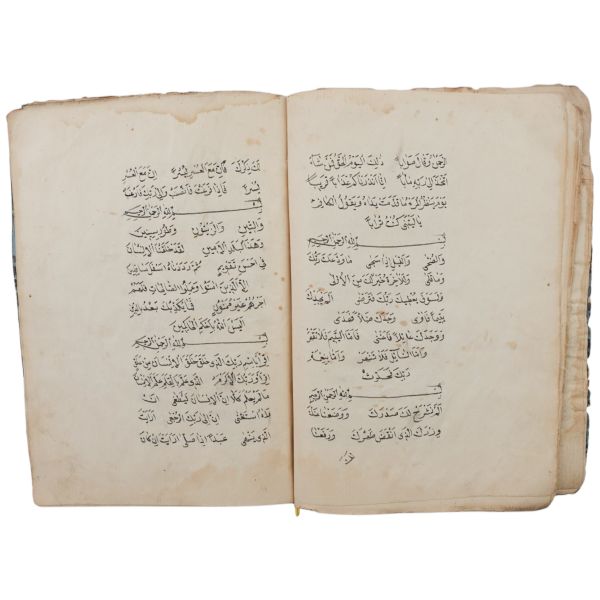 الرحمن وقال صوابا ذلك اليوم الحق فمن شاء
اتخذ الى ربه مابا انا انذرناكم عذابا قريبا
يوم ينظر المرء ما قدمت يداه ويقول الكافر
يا ليتني كنت ترابا
بسم الله الرحمن الرحيم
والضحى والليل اذا سجى ما ودعك ربك
وما قلى وللاخرة خير لك من الاولى
ولسوف يعطيك ربك فترضى الم يجدك
يتيما فاوى ووجدك ضالا فهدى
ووجدك عائلا فاغنى فاما اليتيم فلا تقهر
واما السائل فلا تنهر واما بنعمة
ربك فحدث
بسم الله الرحمن الرحيم
الم نشرح لك صدرك ووضعنا عنك
وزرك الذي انقض ظهرك ورفعنا
لك ذكرك فان مع العسر يسرا ان مع العسر
يسرا فاذا فرغت فانصب والى ربك فارغب
بسم الله الرحمن الرحيم
والتين والزيتون وطور سينين
وهذا البلد الامين لقد خلقنا الانسان
في احسن تقويم ثم رددناه اسفل سافلين
الا الذين امنوا وعملوا الصالحات فلهم
اجر غير ممنون فما يكذبك بعد بالدين
اليس الله باحكم الحاكمين
بسم الله الرحمن الرحيم
اقرا باسم ربك الذي خلق خلق الانسان من علق
اقرا وربك الاكرم الذي علم بالقلم علم الانسان
ما لم يعلم كلا ان الانسان ليطغى ان
راه استغنى ان الى ربك الرجعى ارايت
الذي ينهى عبدا اذا صلى ارايت ان كان